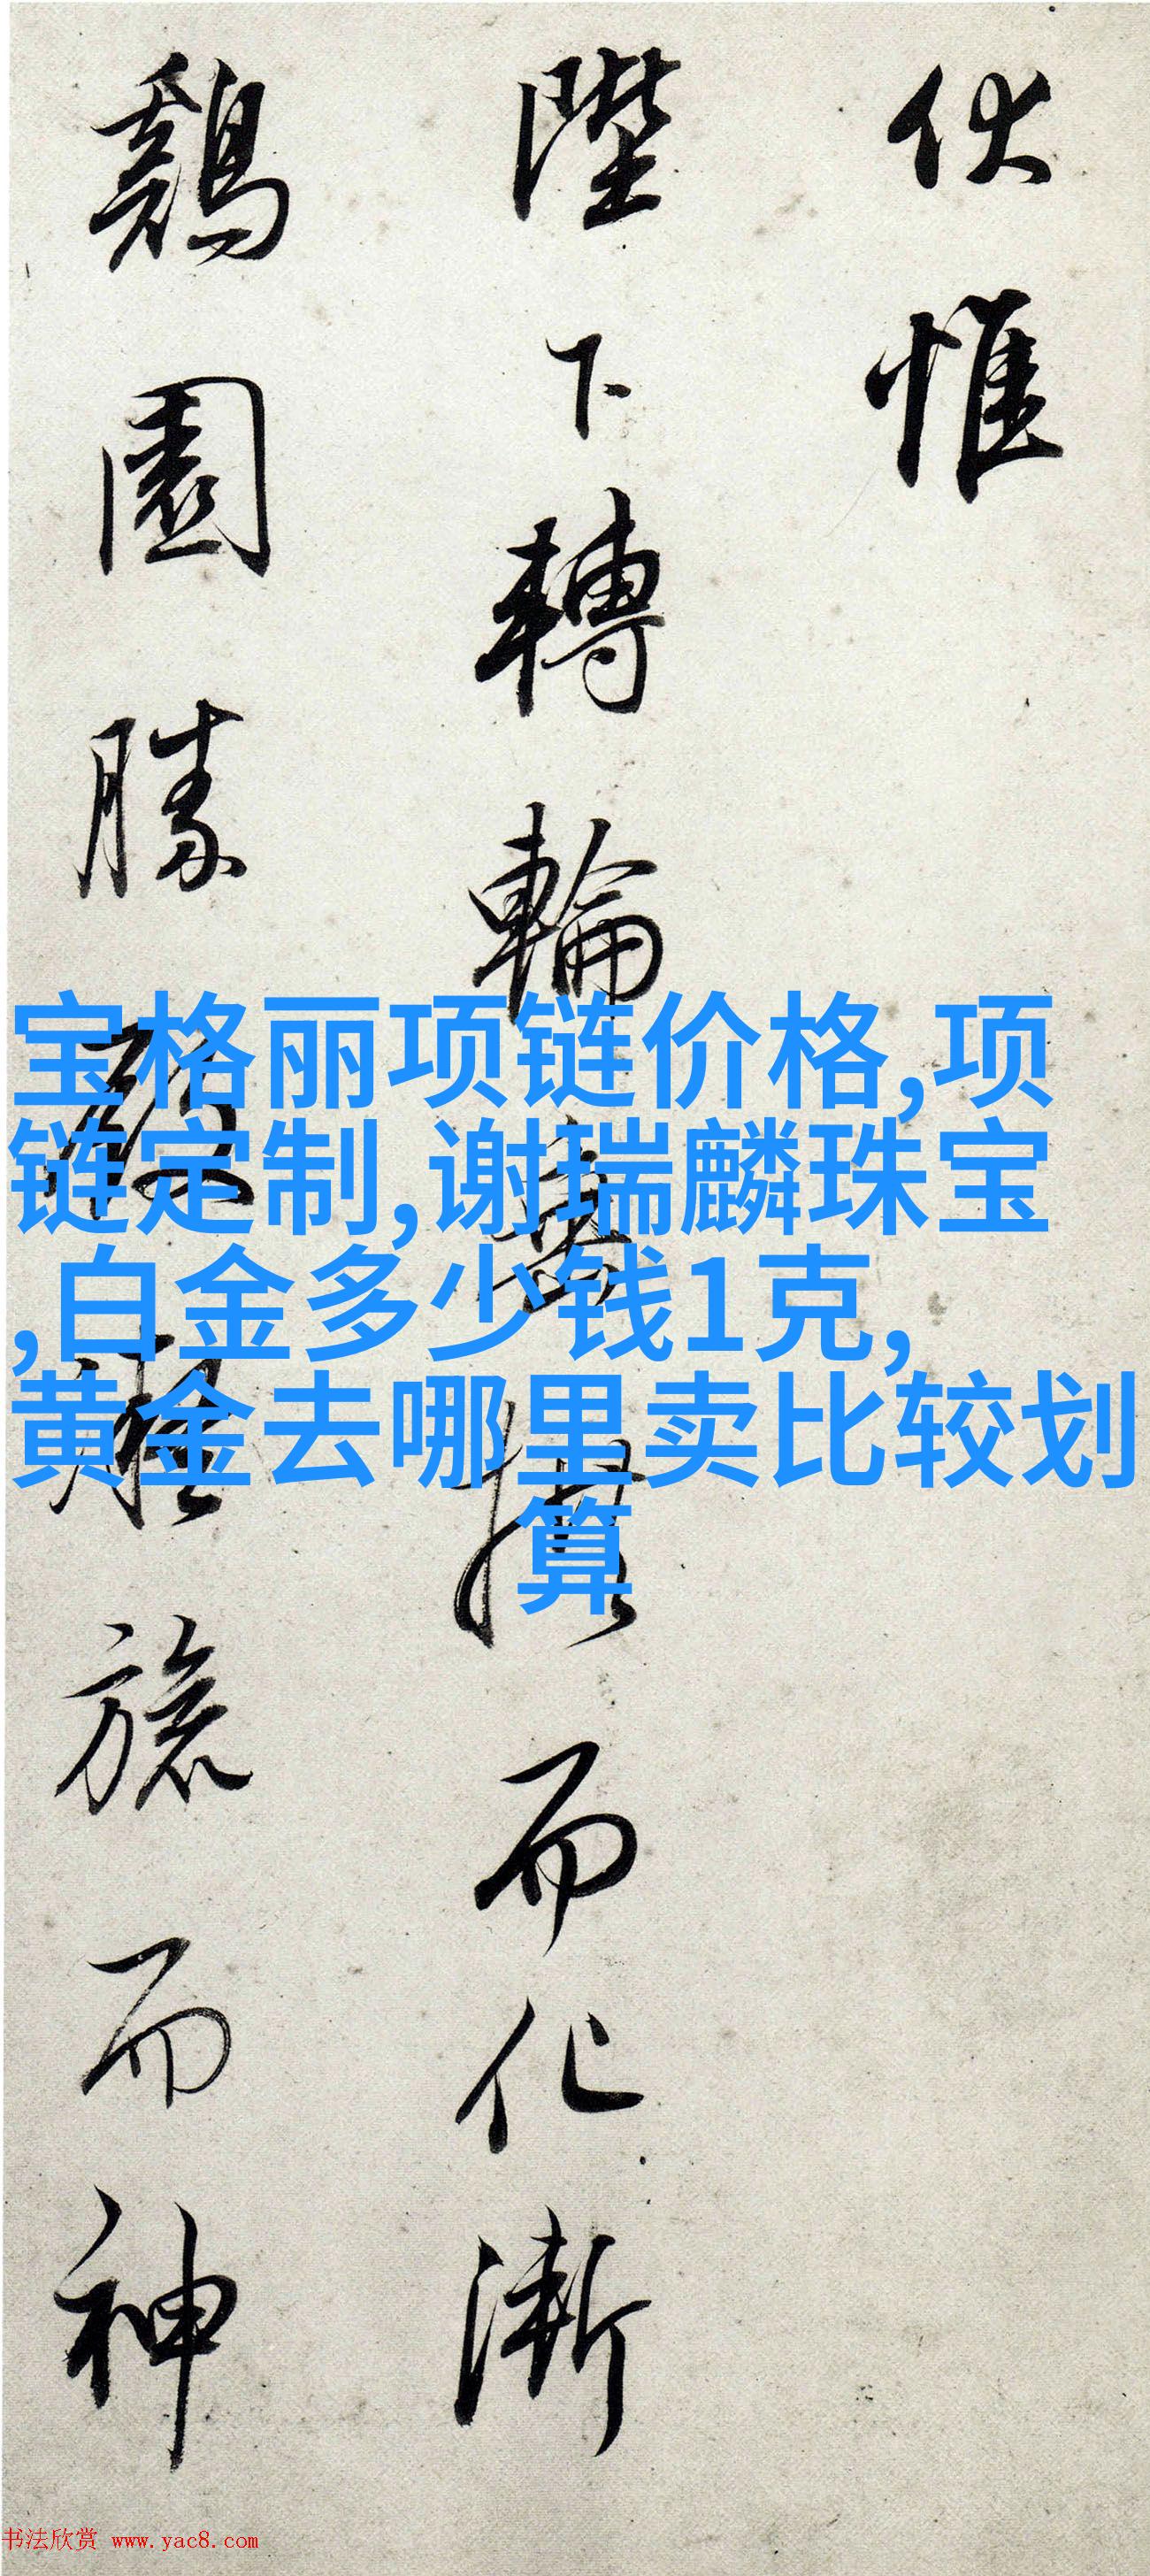 伏惟
陛下轉輪
而化漸
鷄園勝
旅而神
宝格丽项链价格,项
链定制,谢瑞麟珠宝
,白金多少钱1克,
黄金去哪里卖比较划
算
书法欣赏 www.yac8.com